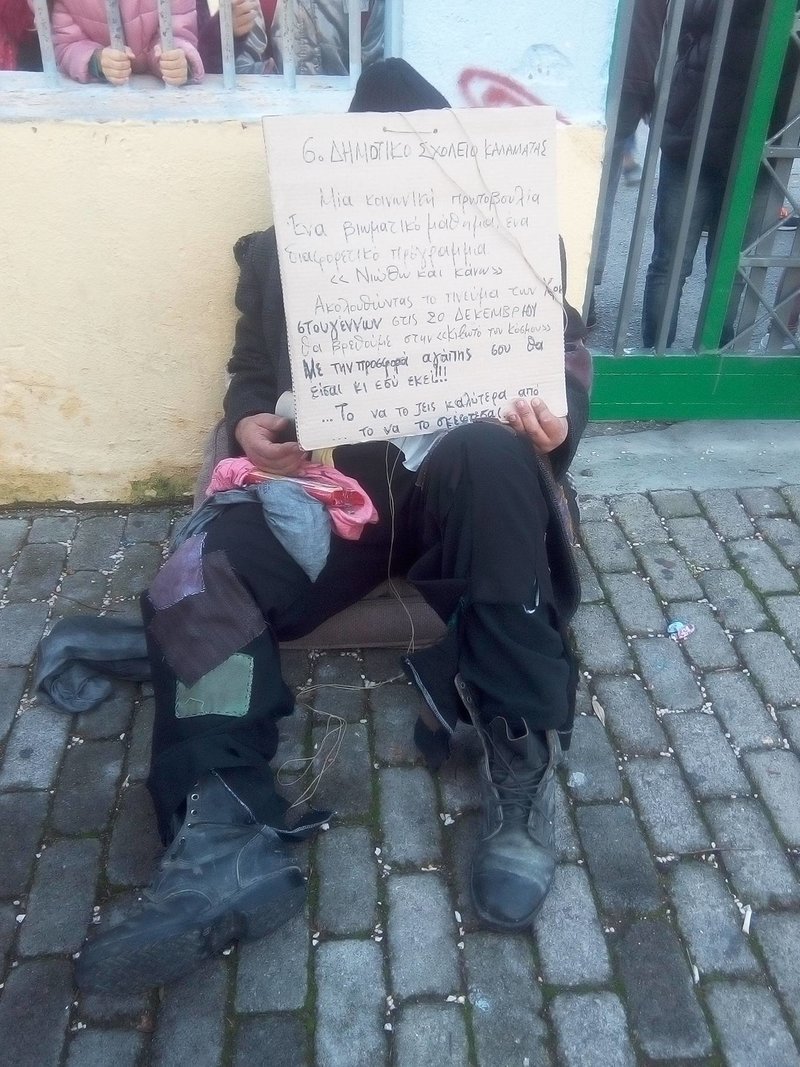 6ο ΔΗΜΟΤΙΚΟ ΣΧΟΛΕΙΟ ΚΑΛΑΜΑΤΑΣ
Μια κοινωνική πρωτοβουλία
Ένα βιωματικό μάθημα, ένα
διαφορετικό πρόγραμμα.
<< Νιώθω και κάνω>>
Ακολουθώντας το πνεύμα των Χρι
στουγέννων στις 20 ΔΕΚΕΜΒΡΙΟΥ
θα βρεθούμε στην <<Κιβωτό του Κόσμου>>
Με την προσφορά αγάπης σου θα
είσαι κι εσύ εκεί!!!
...Το να το ζεις καλύτερα από
...το να το σκέφτεσαι